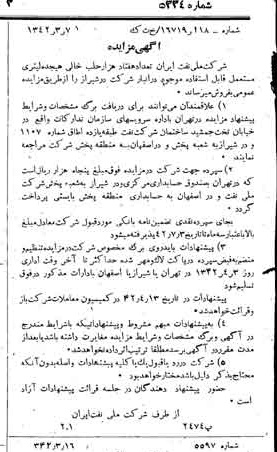 شماره ۵۳۳۴
شماره – ۱۱۸ر۱۶۷۱۹ ۷ر۳ر۱۳۴۲
آگهی مزایده
شرکت ملی نفت ایران تعداد هفتاد هزار حلب خالی هیجده لیتری
مستعمل قابل استفاده موجود در انبار شرکت در شیراز را از طریق مزایده
عمومی بفروش میرساند
۱) علاقمندان می‌توانند برای دریافت برگ مشخصات و شرایط
پیشنهاد مزایده در تهران باداره سرویسهای سازمان تدارکات واقع در
خیابان تخت جمشید ساختمان شرکت نفت طبقه یازده اطاق شماره ۱۱۰۷
و در شیراز به شعبه پخش و در اصفهان به منطقه پخش شرکت مراجعه
نمایند
۲) سپرده جهت شرکت در مزایده فوق مبلغ پنجاه هزار ریال است
که در تهران بصندوق حسابداری مرکزی و در شیراز به شعبه پخش شرکت
ملی نفت و در اصفهان به حسابداری منطقه پخش بایستی پرداخت
گردد
بجای سپرده نقدی تضمین نامه بانکی مورد قبول شرکت معادل مبلغ
بالا با اعتبار سه ماه تا تاریخ ۳ر۷ر۴۲ پذیرفته میشود
۳) پیشنهادات باید روی برگ مخصوص شرکت در مزایده تنظیم و
منضم بقبض سپرده در پاکت لاک و مهر شده حداکثر تا آخر وقت اداری
روز ۳ر۴ر۱۳۴۲ در تهران یا شیراز یا اصفهان بادارات مذکور در فوق
تسلیم شود
پیشنهادات در تاریخ ۱۳ر۴ر۴۲ در کمیسیون معاملات شرکت باز
و قرائت خواهد شد
۴) به پیشنهادات مبهم مشروط و پیشنهاداتیکه با شرایط مندرج
در آگهی و برگ مشخصات و شرایط مزایده مغایرت داشته باشد یا بعد از
مدت مقرر در آگهی برسد مطلقا ترتیب اثر داده نخواهد شد
۵) شرکت در رد یا قبول یک یا کلیه پیشنهادات واصله بدون آنکه
محتاج بذکر دلیل باشد مختار خواهد بود
حضور پیشنهاد دهندگان در جلسه قرائت پیشنهادات آزاد
است
از طرف شرکت ملی نفت ایران
پ۲۴۷۴ ۲ر۱
شماره ۵۵۹۷ ۱۶ر۳ر۳۴۲